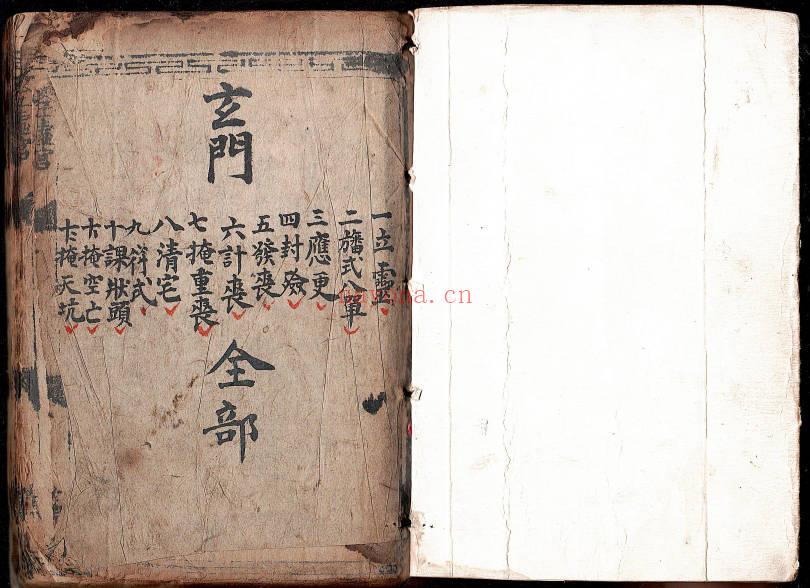 玄門
一立靈
二旛式八单
三應更
四封殮
五發喪
六計喪
七掩重喪
八清宅
九符式
十課狀頭
十二掩天坑
全部